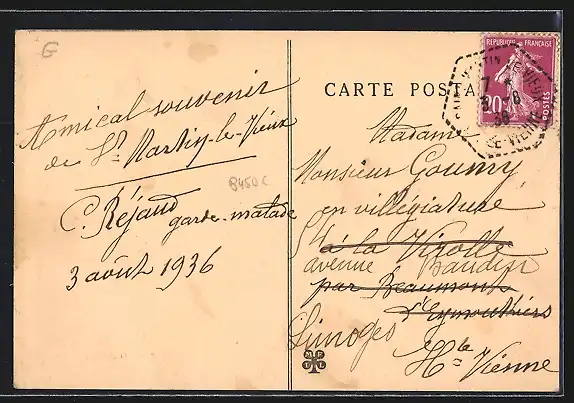 G
Amical souvenir
de St Martin-le-Vieux
B450 C
C. Réjaud
garde-malade
3 août 1936
CARTE POSTALE
REPUBLIQUE FRANÇAISE
20
POSTES
SAINT-MARTIN-LE-VIEUX
7
36
HTE-VIENNE
Madame
Monsieur Goumy
en villégiature
à la Virolle
avenue Baudin
par Beaumont
d'Eymouthiers
Limoges
Hte Vienne